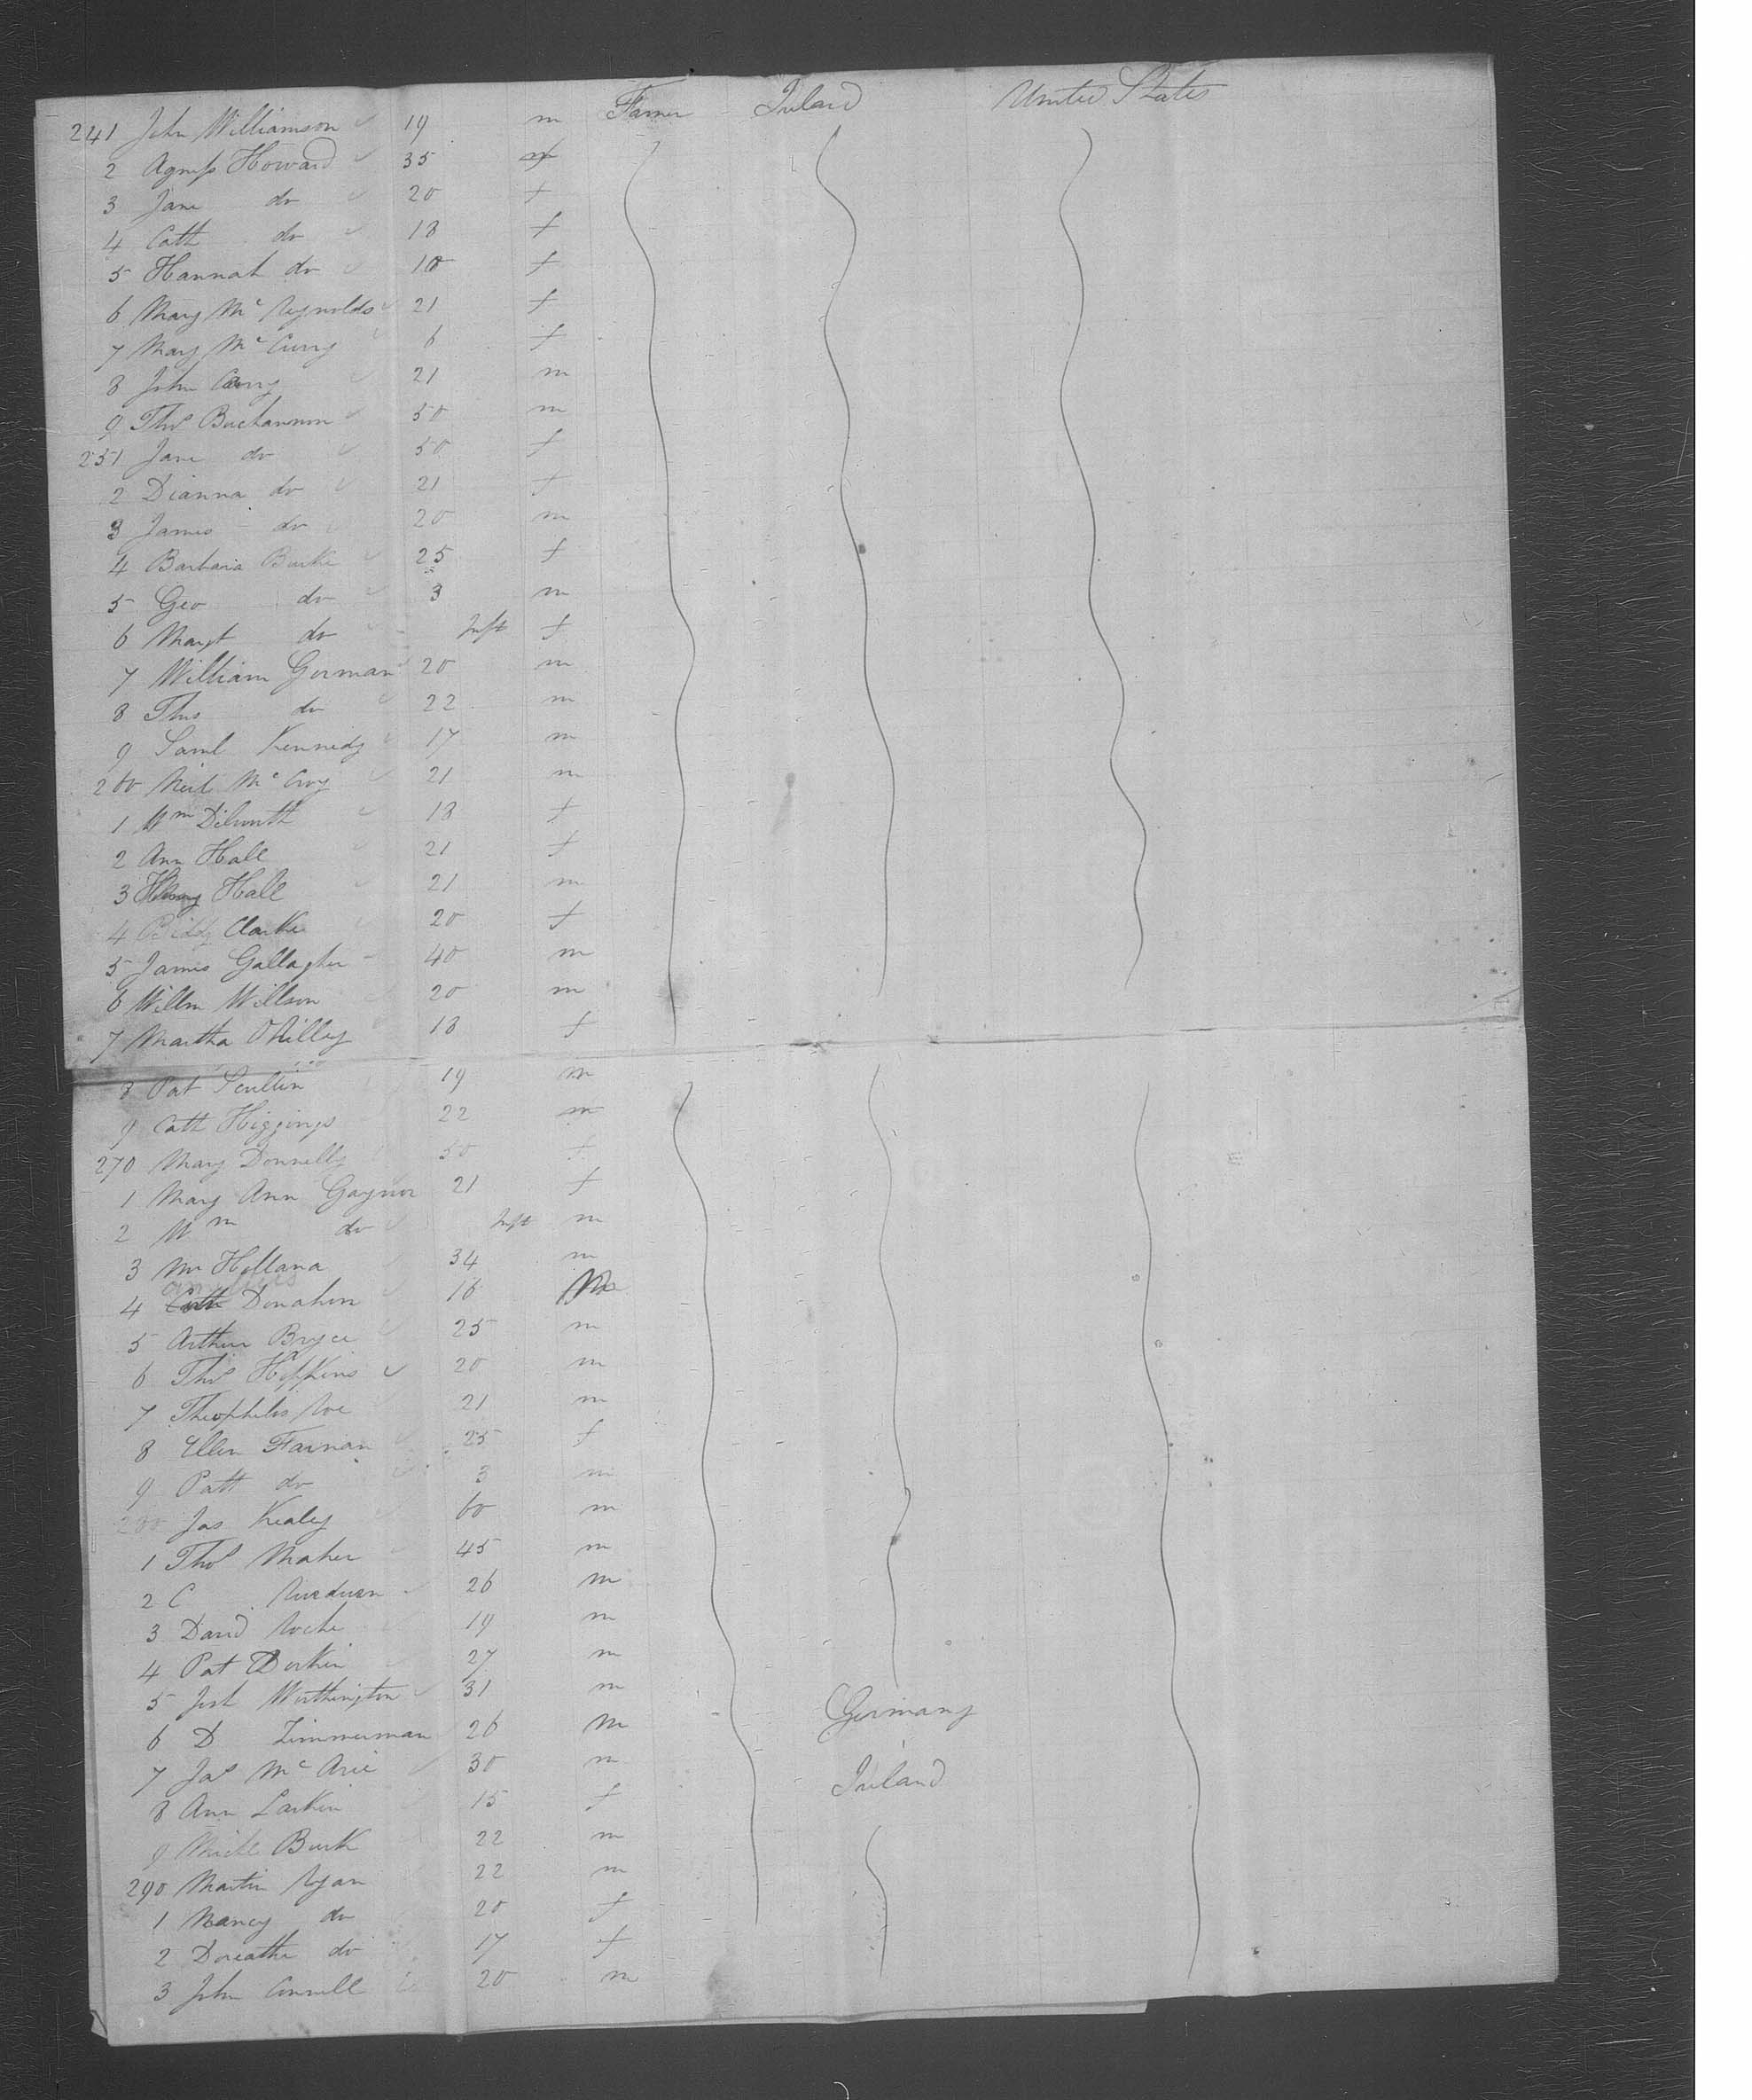 241 John Williamson 19 m Farmer Ireland United States
2 Agness Howard 35 f
3 Jane do 20 f
4 Cath do 18 f
5 Hannah do 10 f
6 Mary Mc Reynolds 21 f
7 Mary Mc Curry 6 f
8 John Curry 21 m
9 Thos Buchannon 50 m
251 Jane do 50 f
2 Dianna do 21 f
3 James do 20 m
4 Barbara Burke 25 f
5 Geo do 3 m
6 Margt do Inft f
7 William Gorman 20 m
8 Thos do 22 m
9 Saml Kennedy 17 m
260 Neil Mc 21 m
1 Wm Dilworth 18 f
2 Ann Hall 21 f
3 Hall 21 m
4 Biddy Clarke 20 f
5 James Gallagher 40 m
6 Willm Willson 20 m
7 Martha OReilley 18 f
8 Pat Scullin 19 m
9 Cath Higgings 22 m
270 Mary Donnelly 50 f
1 Mary Ann Gaynor 21 f
2 Wm do Inft m
3 Mr 34 m
4 Donahoe 16
5 Arthur Bryce 25 m
6 Thos Hopkins 20 m
7 Theophilus Roe 21 m
8 Ellen Farnan 25 f
9 Patt do 3 m
280 Jas Kealey 60 m
1 Thos Maher 45 m
2 C 26 m
3 David Roche 19 m
4 Pat Durkin 27 m
5 Josh Worthington 31 m
6 D Zimmerman 26 m Germany
7 Jas Mc 30 m Ireland
8 Ann Larkin 15 f
9 Michl Burk 22 m
290 Martin Ryan 22 m
1 Nancy do 20 f
2 Doreatha do 17 f
3 John Connell 20 m